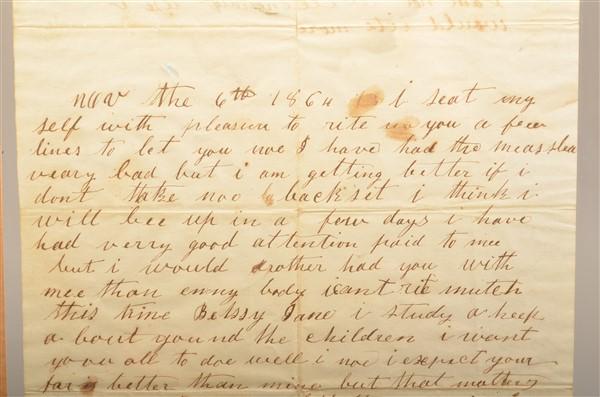 nov the 6th 1864 i seat my
self with pleasure to rite to you a few
lines to let you noe I have had the measles
veary bad but i am getting better if i
dont take noe backset i think i
will bee up in a few days i have
had verry good attention paid to mee
but i would rother had you with
mee than enny body i cant rit mutch
this time Betsy Jane i study a heep
a bout you nd the children i want
you all to doe well i noe i expect your
far is better than mine but that matters